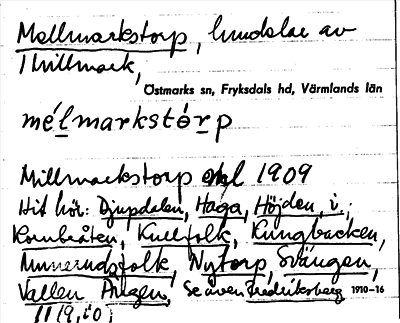 Mellmarkstorp, hemdelar av
Millmark,
Östmarks sn, Fryksdals hd, Värmlands län
mélmarkstórp
Millmarkstorp ekbl 1909
Hit hör: Djupdalen, Haga, Höjden, i.,
Kornbråten, Kullfolk, Kungbacken,
Nytorp, Svängen,
Vallen, Ängen, Se även Fredriksberg 1910-16